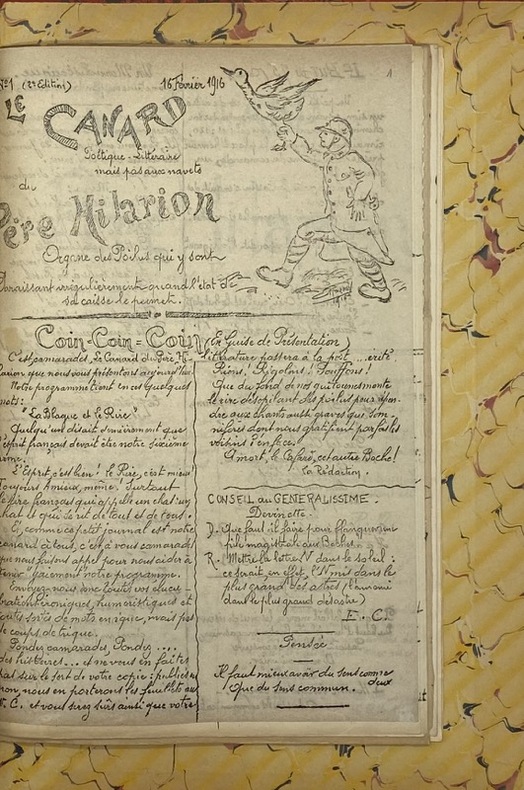 N°1 (2e Edition)
16 Février 1916
1
LE
CANARD
Poétique - Littéraire
mais pas aux navets
du
Père Hilarion
Organe des Poilus qui y sont
Paraissant irrégulièrement quand l'état de
sa caisse le permet.
Coin-Coin-Coin
C'est camarades, Le Canard du Père Hi-
larion que nous vous présentons aujourd'hui.
Notre programme tient en ces quelques
mots:
"La Blague et le Rire"
Quelqu'un disait dernièrement que
l'esprit français devait être notre sixième
arme.
L'Esprit, c'est bien! le Rire, c'est mieux!
Toujours mieux, même! Surtout
le rire français qui appelle un chat un
chat et qui se rit de tout et de tous.
Et, comme ce petit journal est notre
canard à tous, c'est à vous camarades
que nous faisons appel pour nous aider à
tenir gaiement notre programme.
Envoyez-nous donc toutes vos élucu-
brations chroniques, humoristiques et
toutes sortes de mots en ique, mais pas
de coups de trique.
Pondez camarades, Pondez ....
des histoires... et ne vous en faites
pas sur le sort de votre copie: publiée ou
non, nous en porterons les feuillets au
W.C. et vous serez sûrs ainsi que votre
(En Guise de Présentation)
littérature passera à la post...érité
Rions! Rigolons! Pouffons!
Que du fond de nos guitounes monte
le rire désopilant des poilus pour répon-
dre aux chants aussi graves que som-
nifères dont nous gratifient parfois les
voisins d'en face.
A mort le Cafard, et autre Boche!
La Rédaction.
CONSEIL au GENERALISSIME.
Devinette.
D. Que faut il faire pour flanquer une
pile magistrale aux Boches.
R. Mettre la lettre N dans le soleil:
ce serait, en effet, l'N mis dans le
plus grand des astres (l'ennemi
dans le plus grand désastre)
E. C.
Pensée
Il faut mieux avoir du sens comme
deux
Que du sens commun.